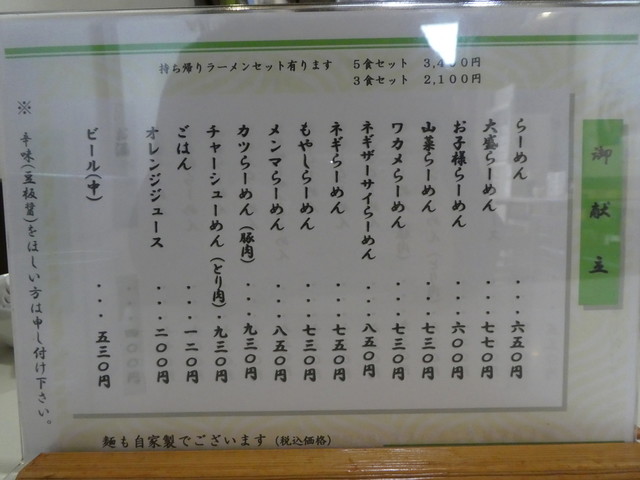 持ち帰りラーメンセット有ります 5食セット 3,400円
3食セット 2,100円
御献立
らーめん ・・・六五〇円
大盛らーめん ・・・七七〇円
お子様らーめん ・・・六〇〇円
山菜らーめん ・・・七三〇円
ワカメらーめん ・・・七三〇円
ネギザーサイらーめん ・・・八五〇円
ネギらーめん ・・・七五〇円
もやしらーめん ・・・七三〇円
メンマらーめん ・・・八五〇円
カツらーめん(豚肉)・・・九三〇円
チャーシューめん(とり肉)・九三〇円
ごはん ・・・一二〇円
オレンジジュース ・・・二〇〇円
ビール(中) ・・・五三〇円
※ 辛味(豆板醤)をほしい方は申し付け下さい。
麺も自家製でございます(税込価格)